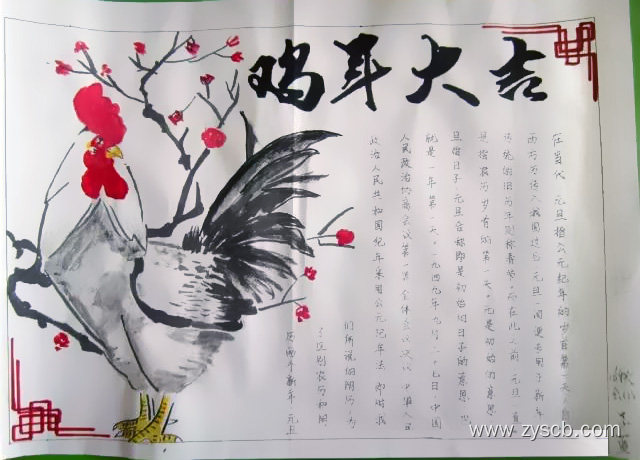 鸡年大吉
在当代，元旦指公元纪年的岁首第一天。自
西方历传入我国以后，元旦一词便专用于新年，
传统的旧历年则称春节。而在此之前，元旦一直
是指农历岁首的第一天。元是初始的意思
旦指日子，元旦合称即是初始的日子的意思，也
就是一年第一天。一九四九年九月二十七日，中国
人民政治协商会议第一届全体会议决议：中华人民
政治人民共和国纪年采用公元纪年法，即我
们所说的阳历，为
了区别农历和阳
历两个新年，元旦
www.zyscb.com